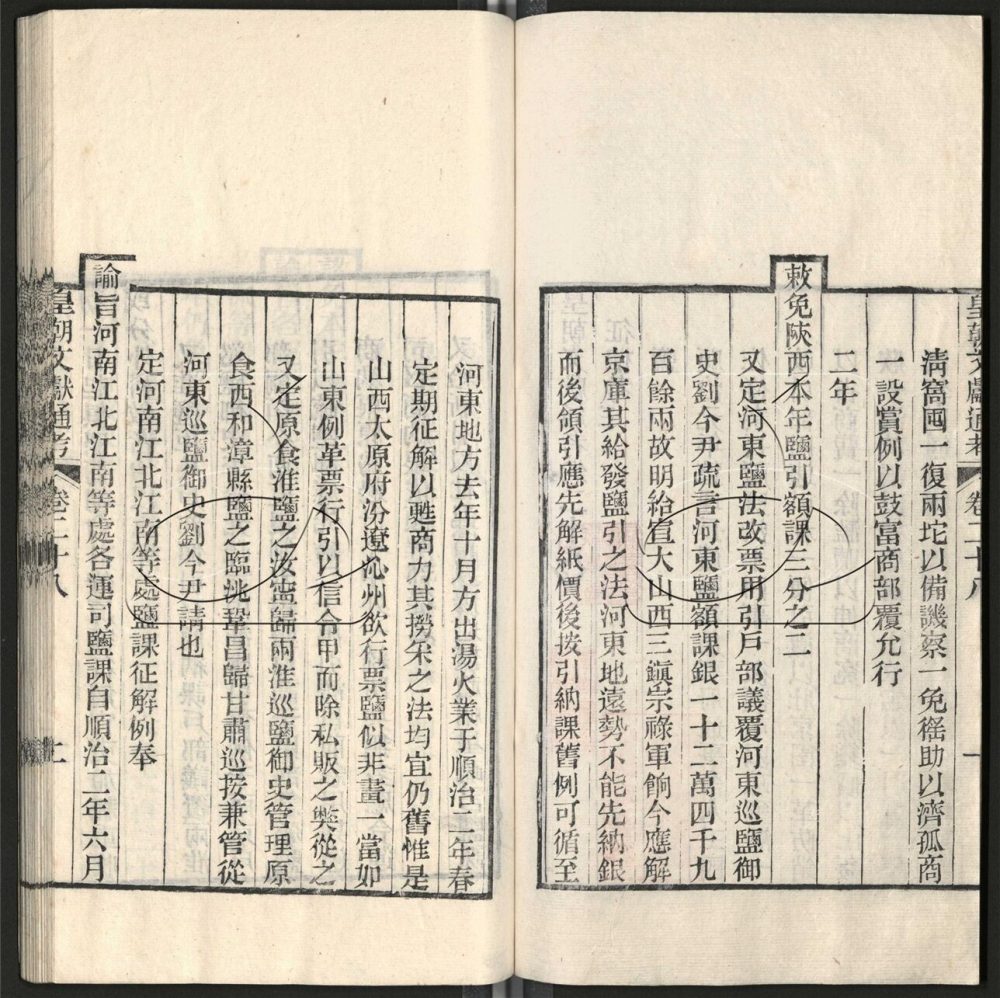 皇朝文獻通考 卷二十八
清窩囤一復兩坨以備譏察一免徭助以濟孤商
一設賞例以鼓富商部覆允行
二年
敕免陝西本年鹽引額課三分之二
又定河東鹽法改票用引戶部議覆河東巡鹽御
史劉今尹疏言河東鹽額課銀一十二萬四千九
百餘兩故明給宣大山西三鎮宗祿軍餉今應解
京庫其給發鹽引之法河東地遠勢不能先納銀
而後領引應先解紙價後按引納課舊例可循至
河東地方去年十月方出湯火業于順治二年春
定期征解以甦商力其撈采之法均宜仍舊惟是
山西太原府汾遼沁州欲行票鹽似非畫一當如
山東例革票行引以信令甲而除私販之獘從之
又定原食淮鹽之汝寧歸兩淮巡鹽御史管理原
食西和漳縣鹽之臨洮鞏昌歸甘肅巡按兼管從
河東巡鹽御史劉今尹請也
定河南江北江南等處鹽課征解例奉
諭旨河南江北江南等處各運司鹽課自順治二年六月
皇朝文獻通考 卷二十八